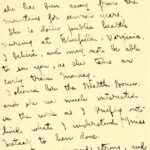 she has gone away from the
mountains for several years.
She is doing public health
nursing at Bluefield - Virginia.
I believe and may not be able
to see you, as she takes an
early train Monday.
I showed her the Health House
and she was much interested
in the work as I briefly out-
lined what I understood Miss
to have done.
strong and